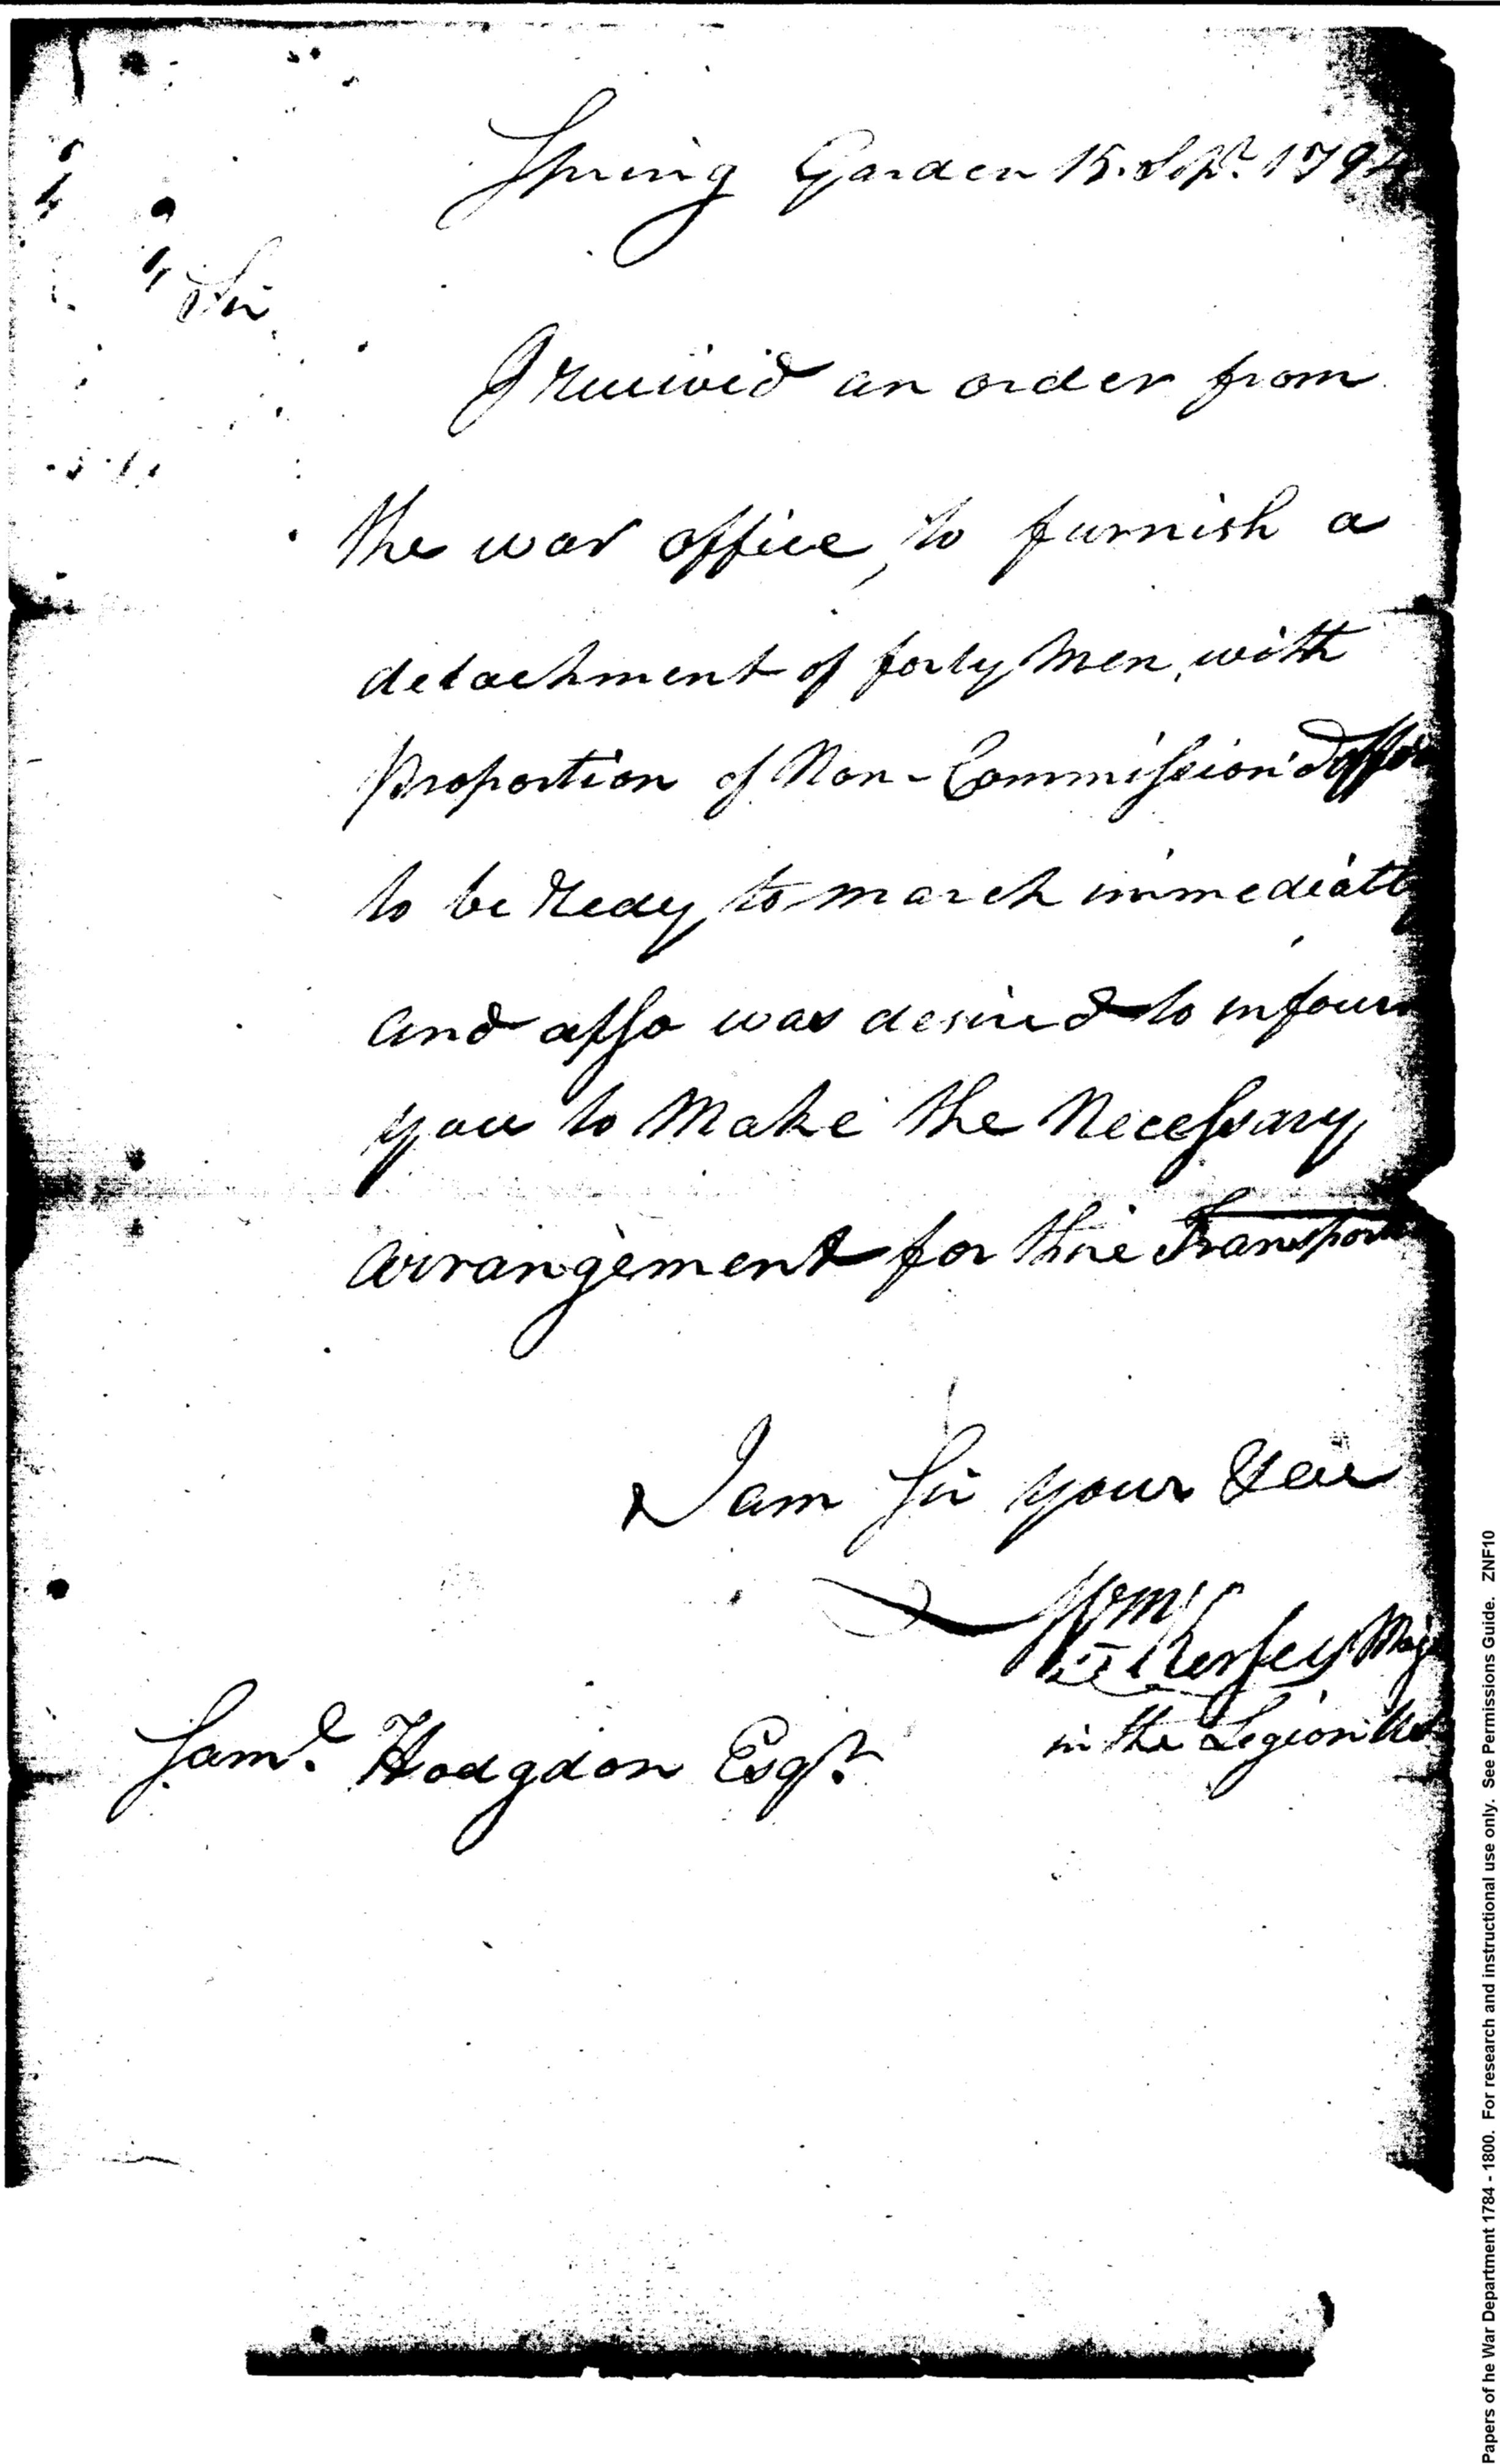 Spring Garden 15. Sepr. 1794
Sir
I receivid an order from
the war office, to furnish a
detachment of forty Men, with
Proportion of Non-Commission'd offi
to be redy, to march immediatl
and also was desired to infour
you to Make the Necessary
arrangement for thire Transport
I am Sir your
Wm. Kersey Maj
in the Legion
Saml. Hodgdon Esqr.
Papers of he War Department 1784 - 1800. For research and instructional use only. See Permissions Guide. ZNF10